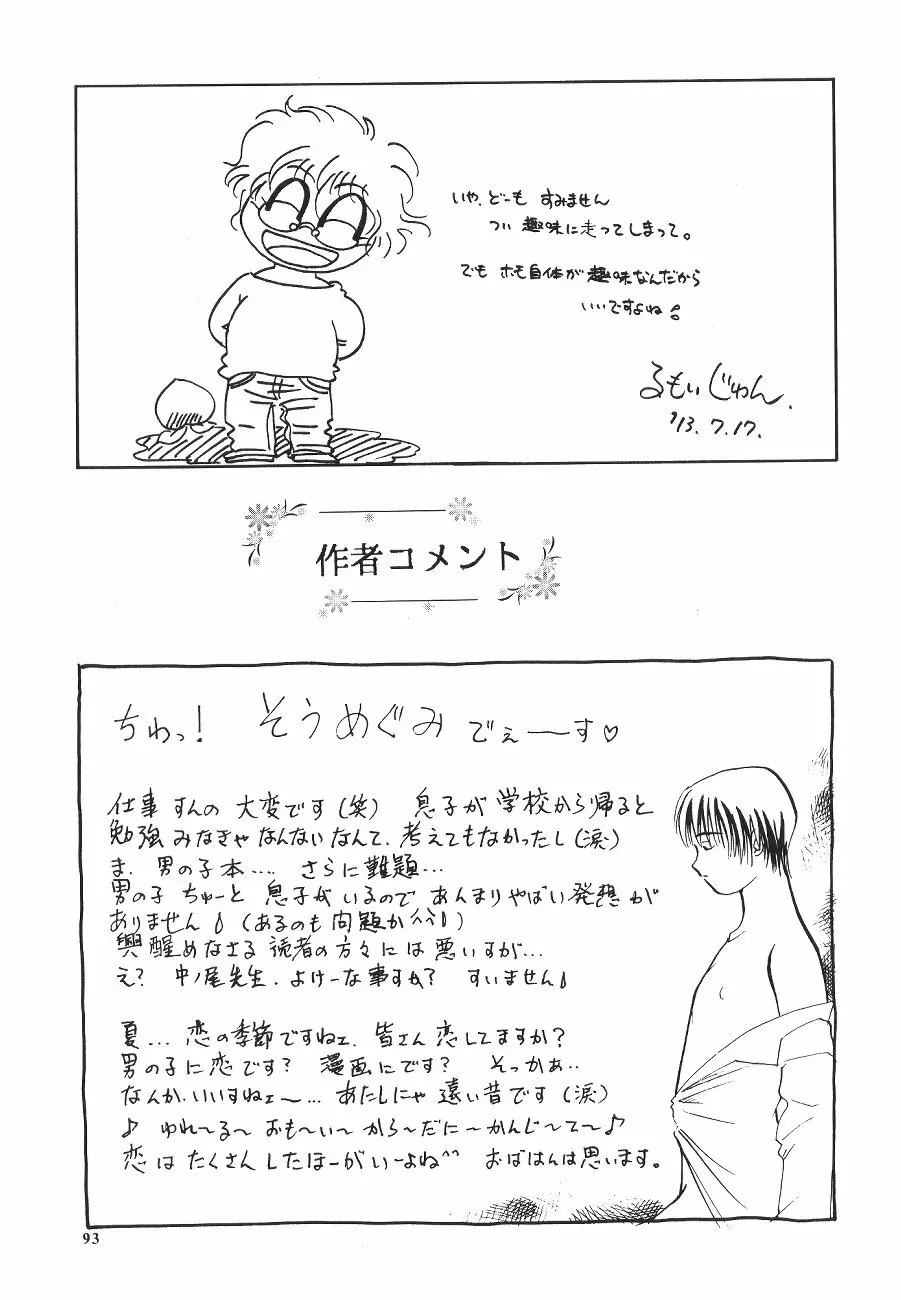 いや、どーも すみません
つい 趣味に走ってしまって。
でも ホモ自体が趣味なんだから
いいですよね!
るもいじゅん.
'13.7.17.
作者コメント
ちわっ! そうめぐみ でぇーーす♡
仕事 すんの 大変です(笑) 息子が学校から帰ると
勉強みなきゃなんないなんて、考えてもなかったし(涙)
ま、男の子本‥‥ さらに難題‥‥
男の子 ちゅーと 息子がいるので あんまりやばい発想が
ありません!(あるのも問題か^^!)
興醒めなさる 読者の方々には 悪いすが‥‥
え? 中ノ尾先生、よけーな事すか? すいません!
夏‥‥ 恋の季節ですねェ、皆さん恋してますか?
男の子に恋です? 漫画にです? そっかぁ‥
なんか、いいすねェ〜‥‥ あたしにゃ 遠い昔です(涙)
♪ ゆれ〜る〜 おも〜い〜 から〜だに〜かんじ〜て〜♪
恋は たくさん したほーがいーよね^^ おばはんは思います。
93